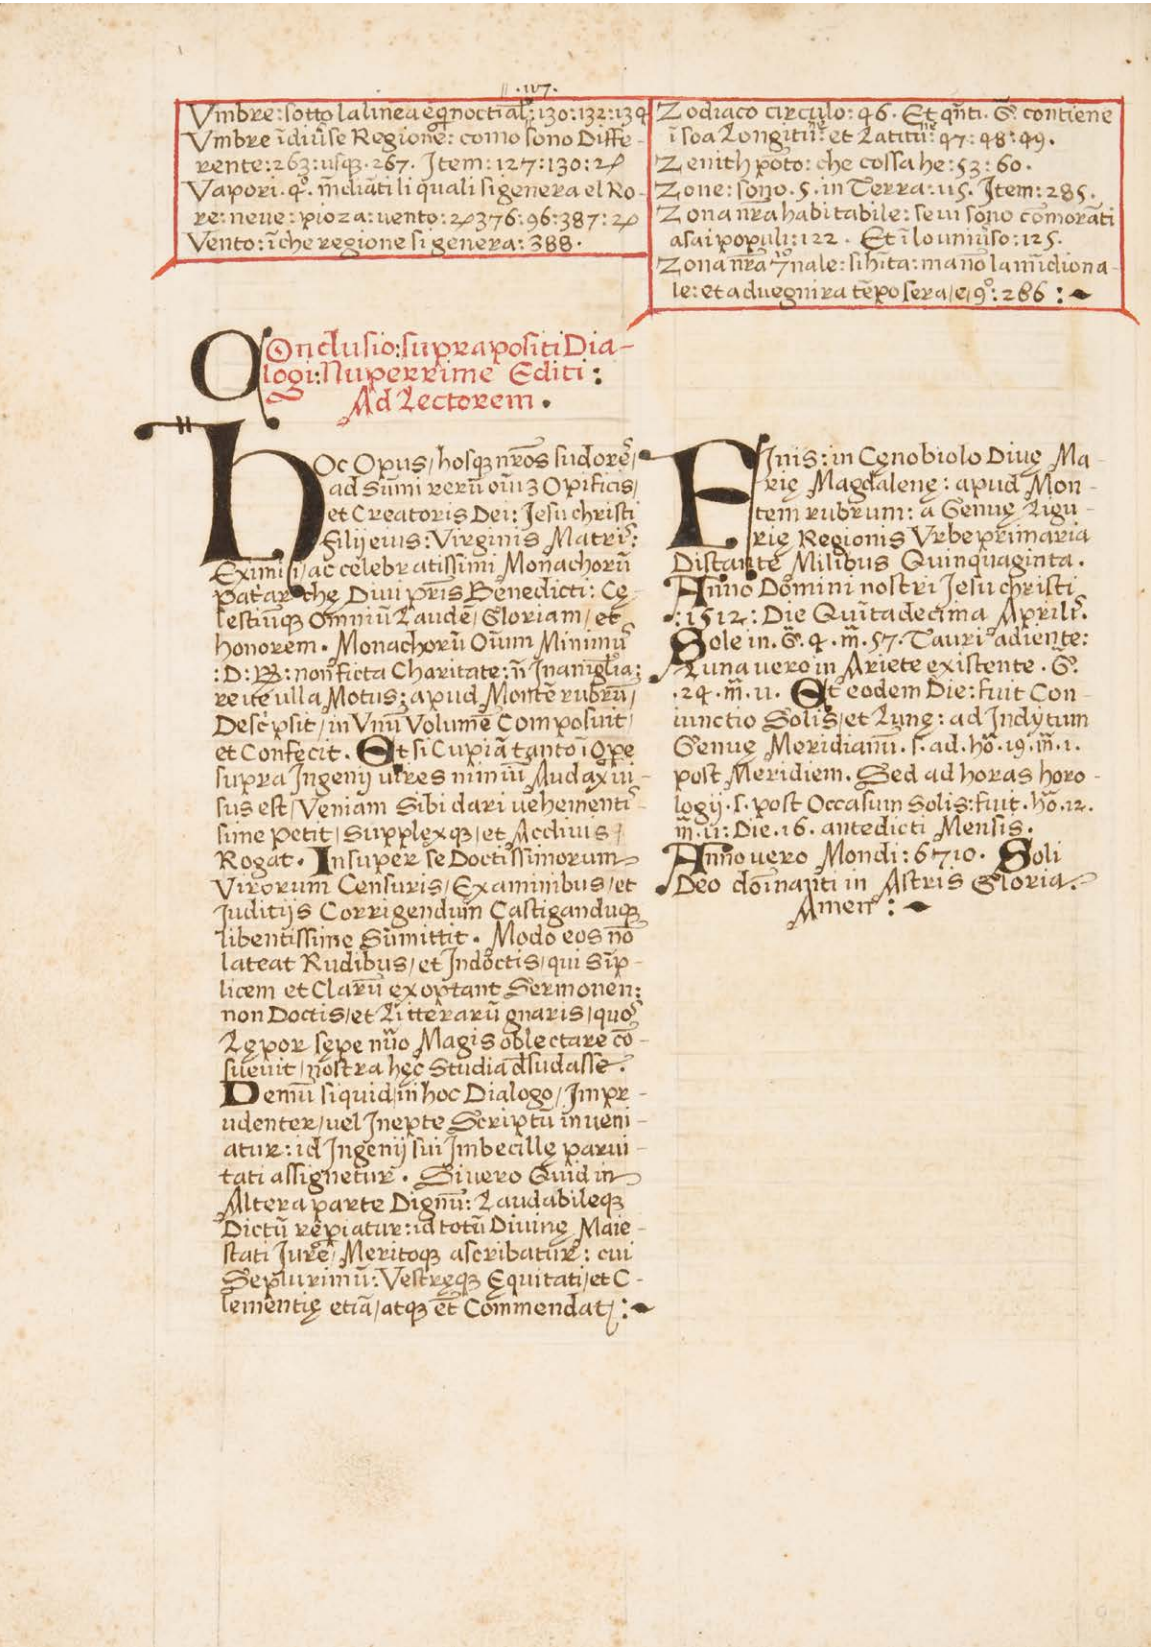 Vmbre: sotto la linea eq̃noctial̃: 130: 132: 134
Vmbre ĩ diũse Regionẽ: como sono Diffe-
rente: 263: usq3 267. Item: 127: 130:
Vapori. qº. m̃diãti li quali si genera el Ro-
re: neue: pioza: uento: 376: 96: 387:
Vento: ĩ che regione si genera: 388.
Zodiaco circulo: 46. Et qñti. G̃. contiene
ĩ soa Longitũ: et Latitũ: 47: 48: 49.
Zenith põto: che cossa he: 53: 60.
Zone: sono. 5. in Terra: 115. Item: 285.
Zona nr̃a habitabile: se ui sono cõmorãti
asai populi: 122. Et ĩ lo uniũso: 125.
Zona nr̃a: si hĩta: ma nõ la m̃idiona-
le: et aduegnira tẽpo sera/e/9º: 286:
COnclusio: supra positi Dia-
logi: Nuperrime Editi:
Ad Lectorem.
HOc Opus/ hosq3 nr̃os sudorẽ/
ad Sũmi rerũ oĩu3 Opificis/
et Creatoris Dei: Jesu christi
filij eius: Virginis Matris:
Eximisi/ ac celebratissimi Monachorũ
patarche Diui pr̃is Benedicti: Cę
lestiũq3 Omniũ Laudẽ/ Gloriam/ et
honorem. Monachorũ Oĩum Minimus
:D: B: non ficta Charitate: ñ Inani gl̃ia:
reue ulla Motus: apud Montẽ rubrũ/
Descpsit/ in Vnũ Volumẽ Composuit/
et Confecit. Et si Cupiã tanto ĩ Ope
supra Ingenij uires nimiũ Audax ui-
sus est/ Veniam Sibi dari uehementi-
sime petit/ Supplexq3/ et Acchiuis/
Rogat. Insuper se Doctissimorum
Virorum Censuris/ Examinibus/ et
Juditijs Corrigendum Castigandũq3
libentissime Sũmittit. Modo eos nõ
lateat Rudibus/ et Indõctis/ qui Sĩp-
licem et Clarũ exoptant Sermonen:
non Doctis/ et Litterarũ gnaris/ quos
Lępor sępe Magis oblectare cõ-
sueuit/ nostra hęc Studia d̃sudasse.
Demũ si quid in hoc Dialogo/ Impr-
udenter/ uel Inepte Scriptũ inueni-
atur: id Ingenij sui Imbecillę parui-
tati assignetur. Si uero Quid in
Altera parte Dignũ: Laudabileq3
Dictũ rep̃iatur: id totũ Diuinę Maie-
stati Jurẽ/ Meritoq3 ascribatur: cui
Se plurimũ: Vestręq3 Ęquitati/ et C-
lementię etiã/ atq3 et̃ Commendat:
FInis: in Cęnobiolo Diuę Ma-
rię Magdalenę: apud Mon-
tem rubrum: a Genuę Ligu-
rię Regionis Vrbe primaria
Distante Milibus Quinquaginta.
Anno Domini nostri Jesu christi
:1512: Die Quĩtadecima Aprilis.
Sole in. G̃. 4. m̃. 57. Tauri adiente:
Luna uero in Ariete existente. G̃.
.24. m̃. 11. Et eodem Die: fuit Con-
iunctio Solis/ et Lunę: ad Indytum
Genuę Meridianũ. s. ad. hõ. 19. m̃. 1.
post Meridiem. Sed ad horas horo-
logij. s. post Occasum Solis: fuit. hõ. 12.
m̃. 11: Die. 16. antedicti Mensis.
Anno uero Mondi: 6710. Soli
Deo dom̃inanti in Astris Gloria.
Amen: